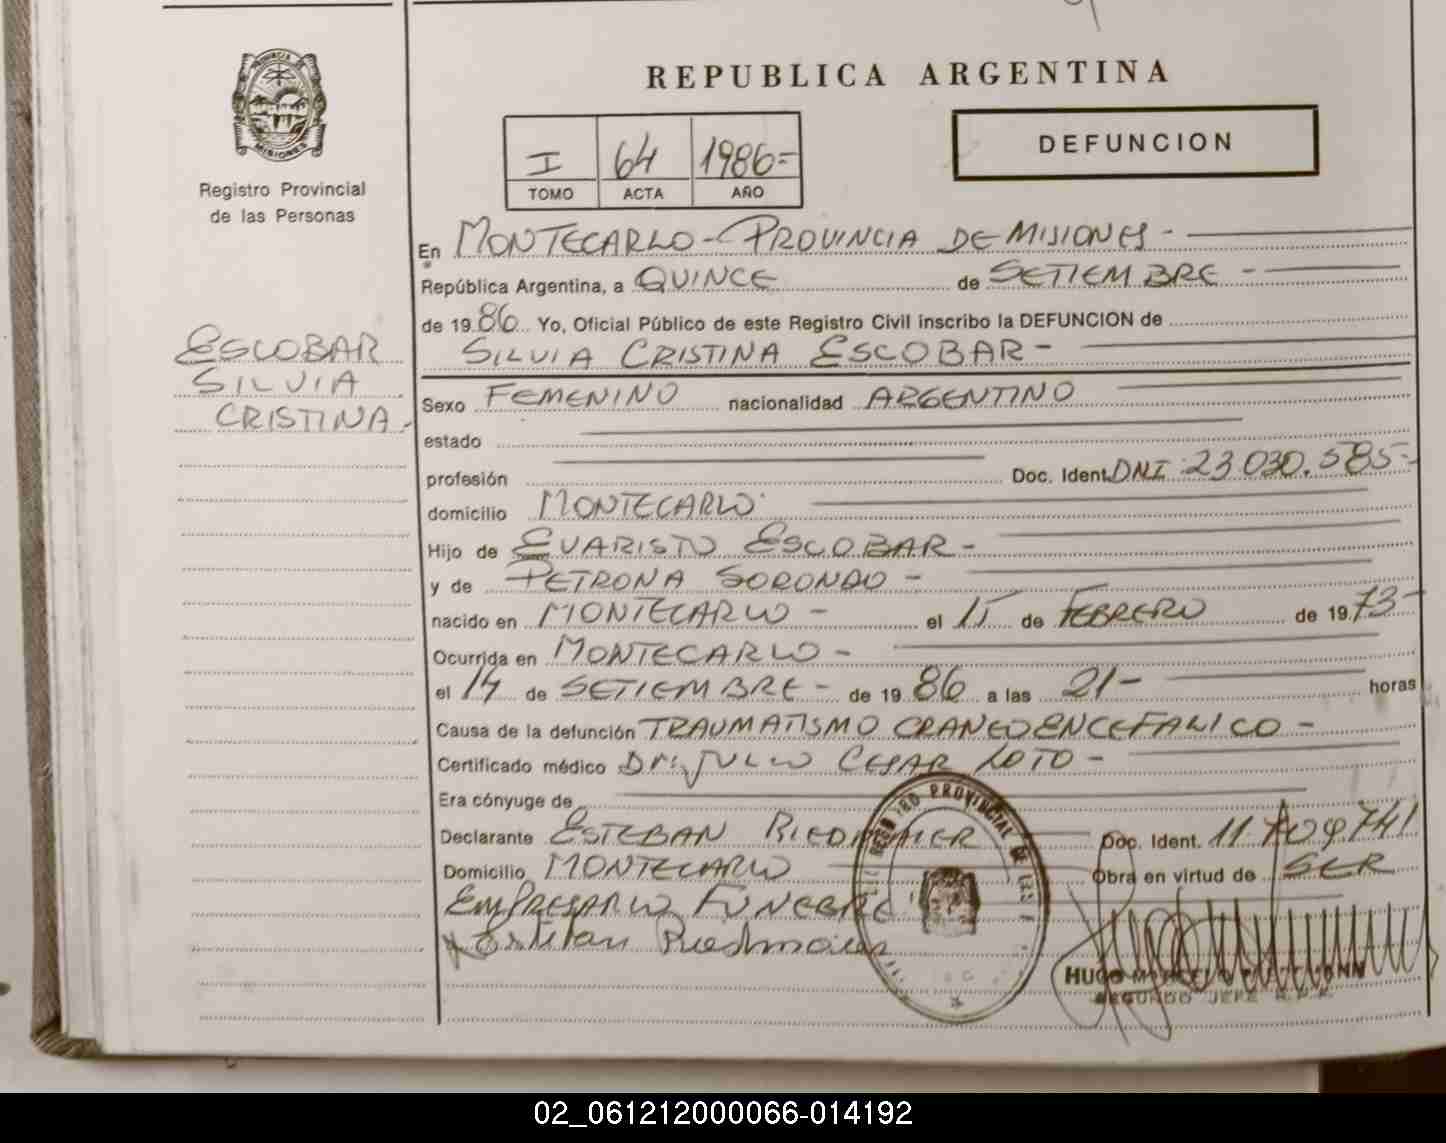 PROVINCIA DE
MISIONES
Registro Provincial
de las Personas
ESCOBAR
SILVIA
CRISTINA.
REPUBLICA ARGENTINA
I 64 1986=
TOMO ACTA AÑO
DEFUNCION
En MONTECARLO - PROVINCIA DE MISIONES -
República Argentina, a QUINCE de SETIEMBRE -
de 19 86 Yo, Oficial Público de este Registro Civil inscribo la DEFUNCION de
SILVIA CRISTINA ESCOBAR -
Sexo FEMENINO nacionalidad ARGENTINO
estado
profesión Doc. Ident. DNI 23.030.585-
domicilio MONTECARLO
Hijo de EVARISTO ESCOBAR -
y de PETRONA SORONDO -
nacido en MONTECARLO - el 15 de FEBRERO de 1973-
Ocurrida en MONTECARLO -
el 14 de SETIEMBRE - de 19 86 a las 21- horas
Causa de la defunción TRAUMATISMO CRANEOENCEFALICO -
Certificado médico Dr. JULIO CESAR LOTO -
Era cónyuge de
Declarante ESTEBAN Doc. Ident. 11.709.741
Domicilio MONTECARLO Obra en virtud de SER
EMPRESARIO FUNEBRE
Esteban
REGISTRO PROVINCIAL DE LAS
HUGO
SEGUNDO JEFE R.P.P.
02_061212000066-014192